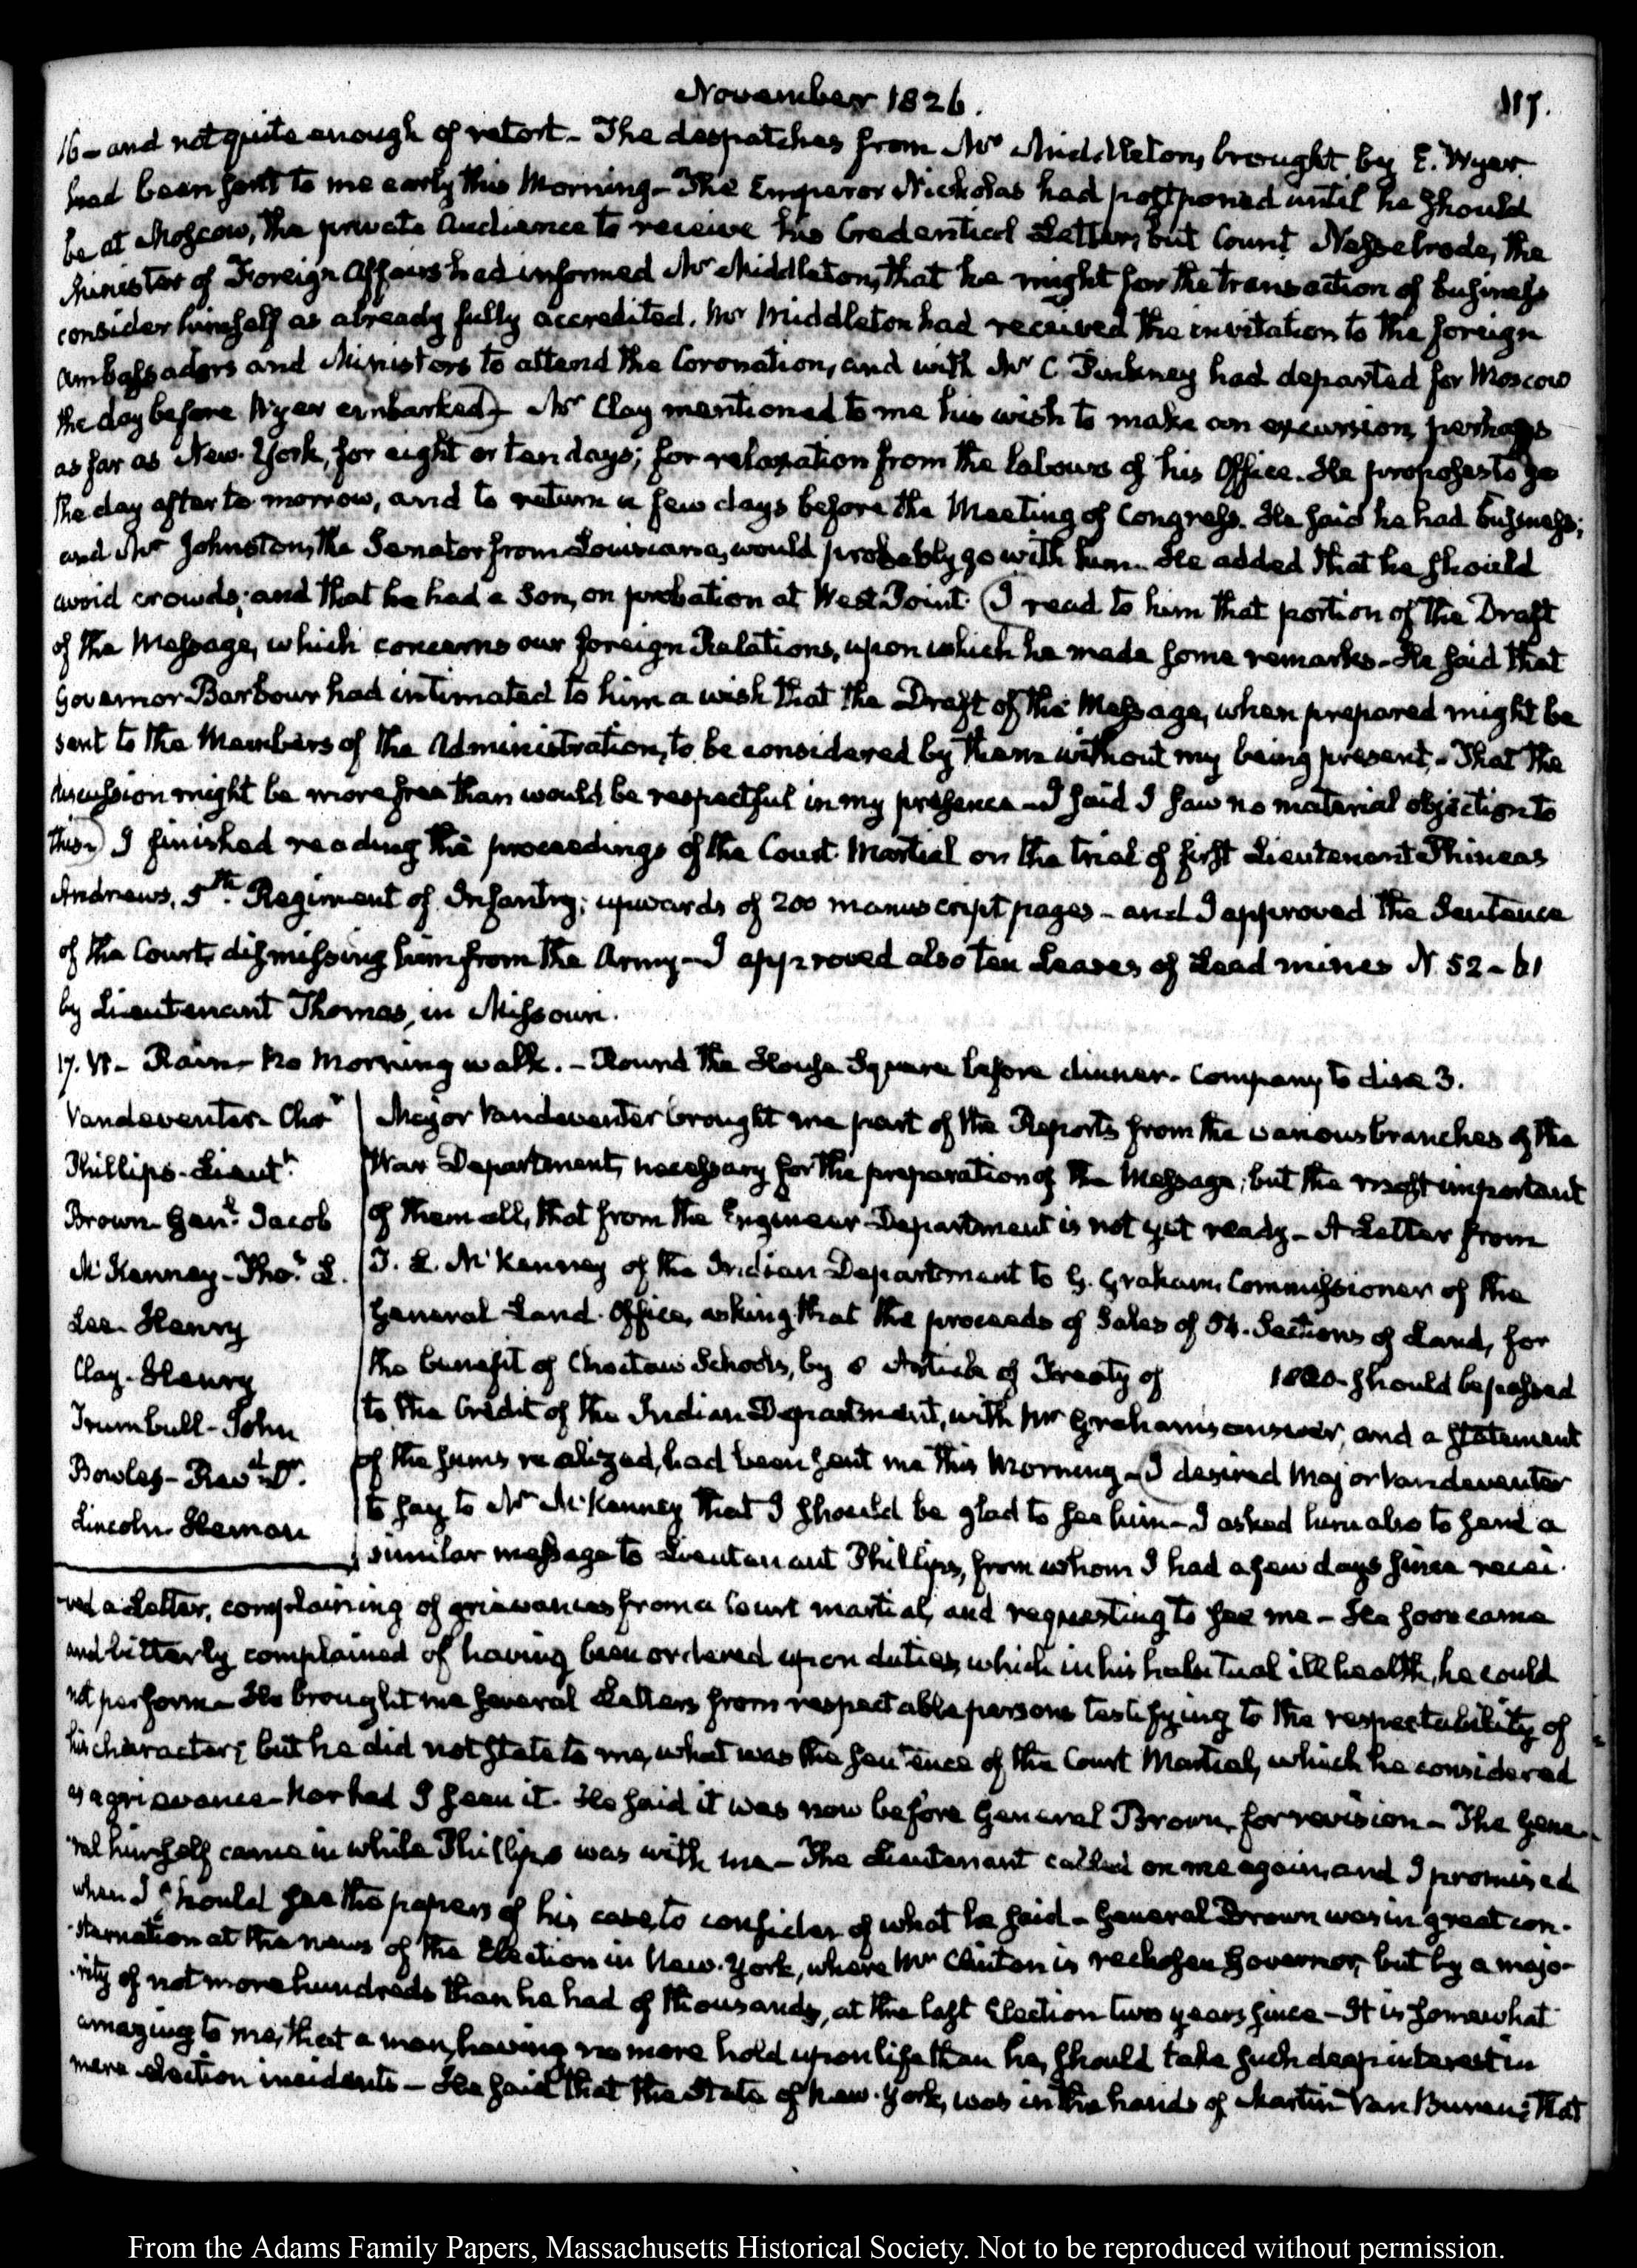 November 1826.
117.
16 - and not quite enough of retort - The despatches from Mr Middleton, brought by E. Wyer
had been sent to me early this Morning - The Emperor Nicholas had postponed until he should
be at Moscow, the private Audience to receive his Credential Letter, but Count Nesselrode, the
Minister of Foreign Affairs had informed Mr Middleton, that he might for the transaction of business
consider himself as already fully accredited. Mr Middleton had received the invitation to the foreign
Ambassadors and Ministers to attend the Coronation, and with Mr C Pinkney had departed for Moscow
the day before Wyer embarked) - Mr Clay mentioned to me his wish to make an excursion, perhaps
as far as New-York, for eight or ten days; for relaxation from the labours of his Office. He proposes to go
the day after to morrow, and to return a few days before the Meeting of Congress. He said he had business;
and Mr Johnston, the Senator from Louisiana, would probably go with him. He added that he should
avoid crowds; and that he had a Son, on probation at West Point. (I read to him that portion of the Draft
of the Message, which concerns our foreign Relations, upon which he made some remarks - He said that
Governor Barbour had intimated to him a wish that the Draft of the Message, when prepared might be
sent to the Members of the Administration, to be considered by them without my being present. - That the
discussion might be more free than would be respectful in my presence - I said I saw no material objection to
this -) I finished reading the proceedings of the Court Martial on the trial of first Lieutenant Phineas
Andrews, 5th. Regiment of Infantry; upwards of 200 manuscript pages - and I approved the Sentence
of the Court, dismissing him from the Army - I approved also ten Leases of Lead mines N. 52 - 61
by Lieutenant Thomas, in Missouri.
17. VI - Rain - No Morning walk. - Round the House Square before dinner. Company to dine 3.
Vandeventer - Chr
Phillips - Lieutt.
Brown - Genl. Jacob
McKenney - Thos. L.
Lee - Henry
Clay - Henry
Trumbull - John
Bowles - Revd. Dr.
Lincoln - Heman
Major Vandeventer brought me part of the Reports from the various branches of the
War Department, necessary for the preparation of the Message; but the most important
of them all, that from the Engineer Department is not yet ready - A Letter from
T. L. McKenney of the Indian Department to G. Graham Commissioner of the
General Land-Office, asking that the proceeds of Sales of 54. Sections of Land, for
the benefit of Choctaw Schools, by 8 Article of Treaty of 1820 - should be passed
to the Credit of the Indian Department, with Mr Graham's answer, and a statement
of the sums realized, had been sent me this Morning - (I desired Major Vandeventer
to say to Mr McKenney that I should be glad to see him - I asked him also to send a
similar message to Lieutenant Phillips, from whom I had a few days since recei-
-ved a Letter, complaining of grievances from a Court martial, and requesting to see me - He soon came
and bitterly complained of having been ordered upon duties, which in his habitual ill health, he could
not perform - He brought me several Letters from respectable persons testifying to the respectability of
his character; but he did not state to me, what was the sentence of the Court Martial, which he considered
as a grievance - Nor had I seen it. He said it was now before General Brown, for revision - The Gene-
-ral himself came in while Phillips was with me - The Lieutenant called on me again, and I promised
when I should see the papers of his case, to consider of what he said - General Brown was in great con-
-sternation at the news of the Election in New-York, where Mr Clinton is rechosen Governor, but by a majo-
-rity of not more hundreds than he had of thousands, at the last Election two years since - It is somewhat
amazing to me, that a man, having no more hold upon life than he, should take such deep interest in
mere election incidents - He said that the State of New-York, was in the hands of Martin Van Buren; that
From the Adams Family Papers, Massachusetts Historical Society. Not to be reproduced without permission.